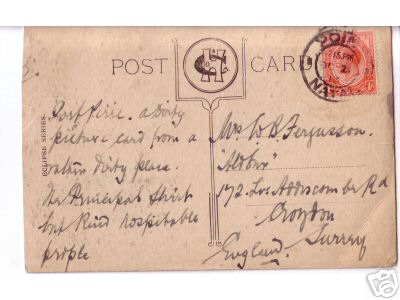 POST CARD
ECLIPSE SERIES.
Port Pirie. a Dirty
picture card from a
rather Dirty place.
The Principal Street
but Kind hospitable
people
Mrs W R Fergusson.
172 Lr: Addiscombe Rd
Croydon
Surrey
England.
eBay